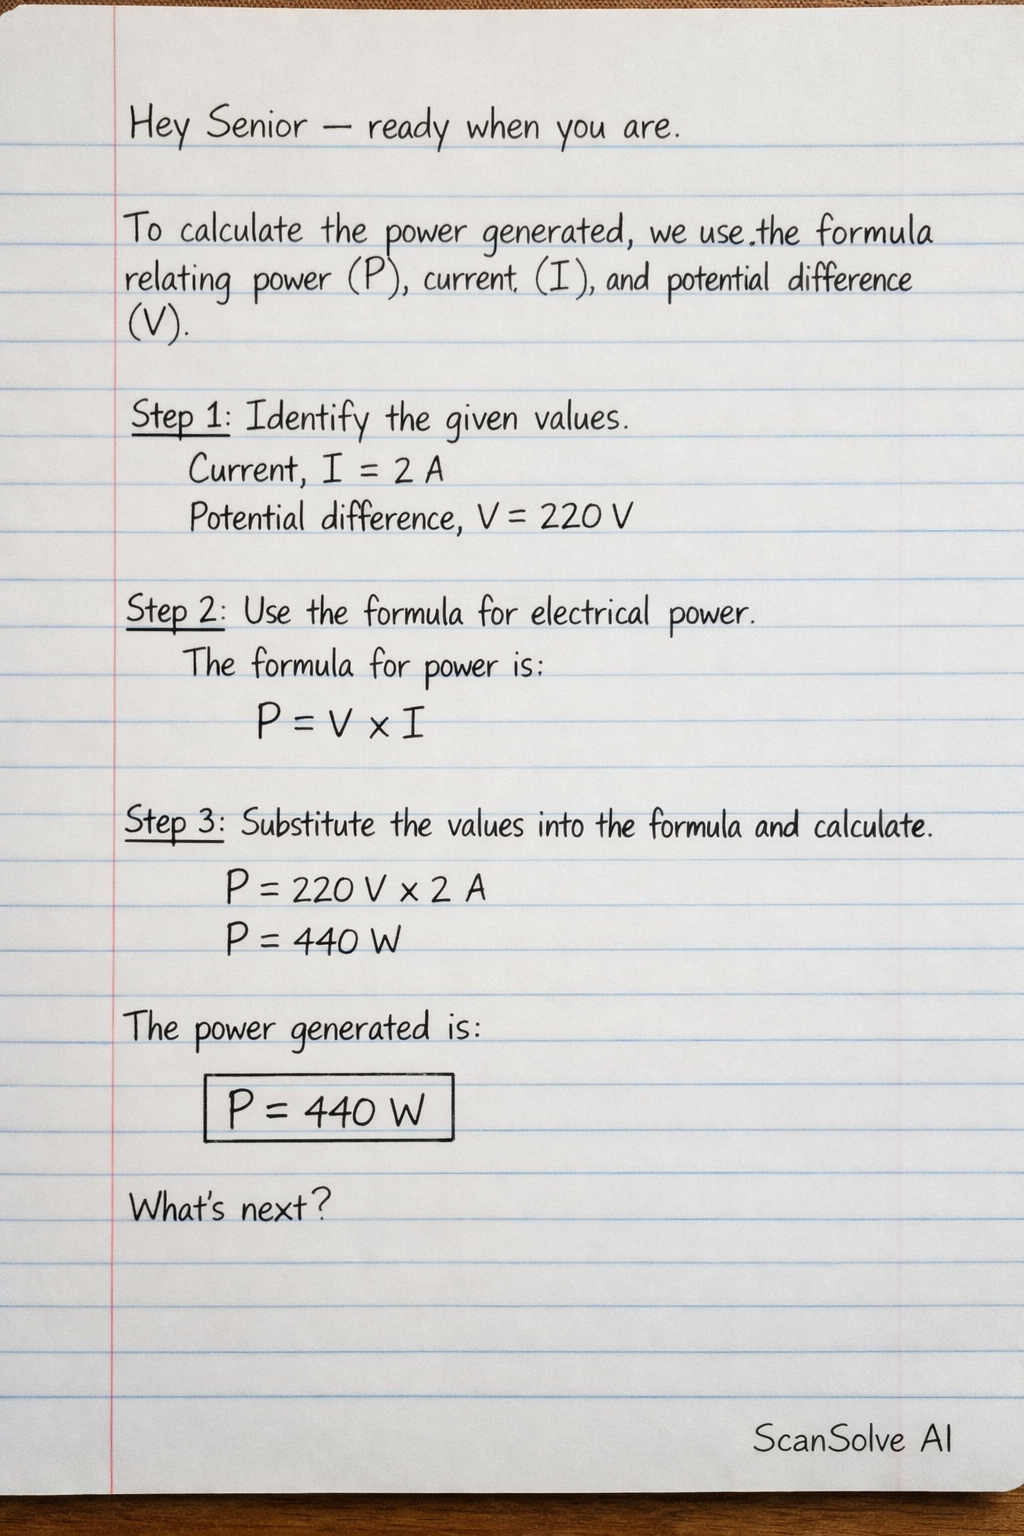 Hey Senior — ready when you are.
To calculate the power generated, we use.the formula
relating power (P), current. (I), and potential difference
(V).
Step 1: Identify the given values.
Current, I = 2 A
Potential difference, V = 220 V
Step 2: Use the formula for electrical power.
The formula for power is:
P = V x I
Step 3: Substitute the values into the formula and calculate.
P = 220 V x 2 A
P = 440 W
The power generated is:
P = 440 W
What's next?
ScanSolve AI